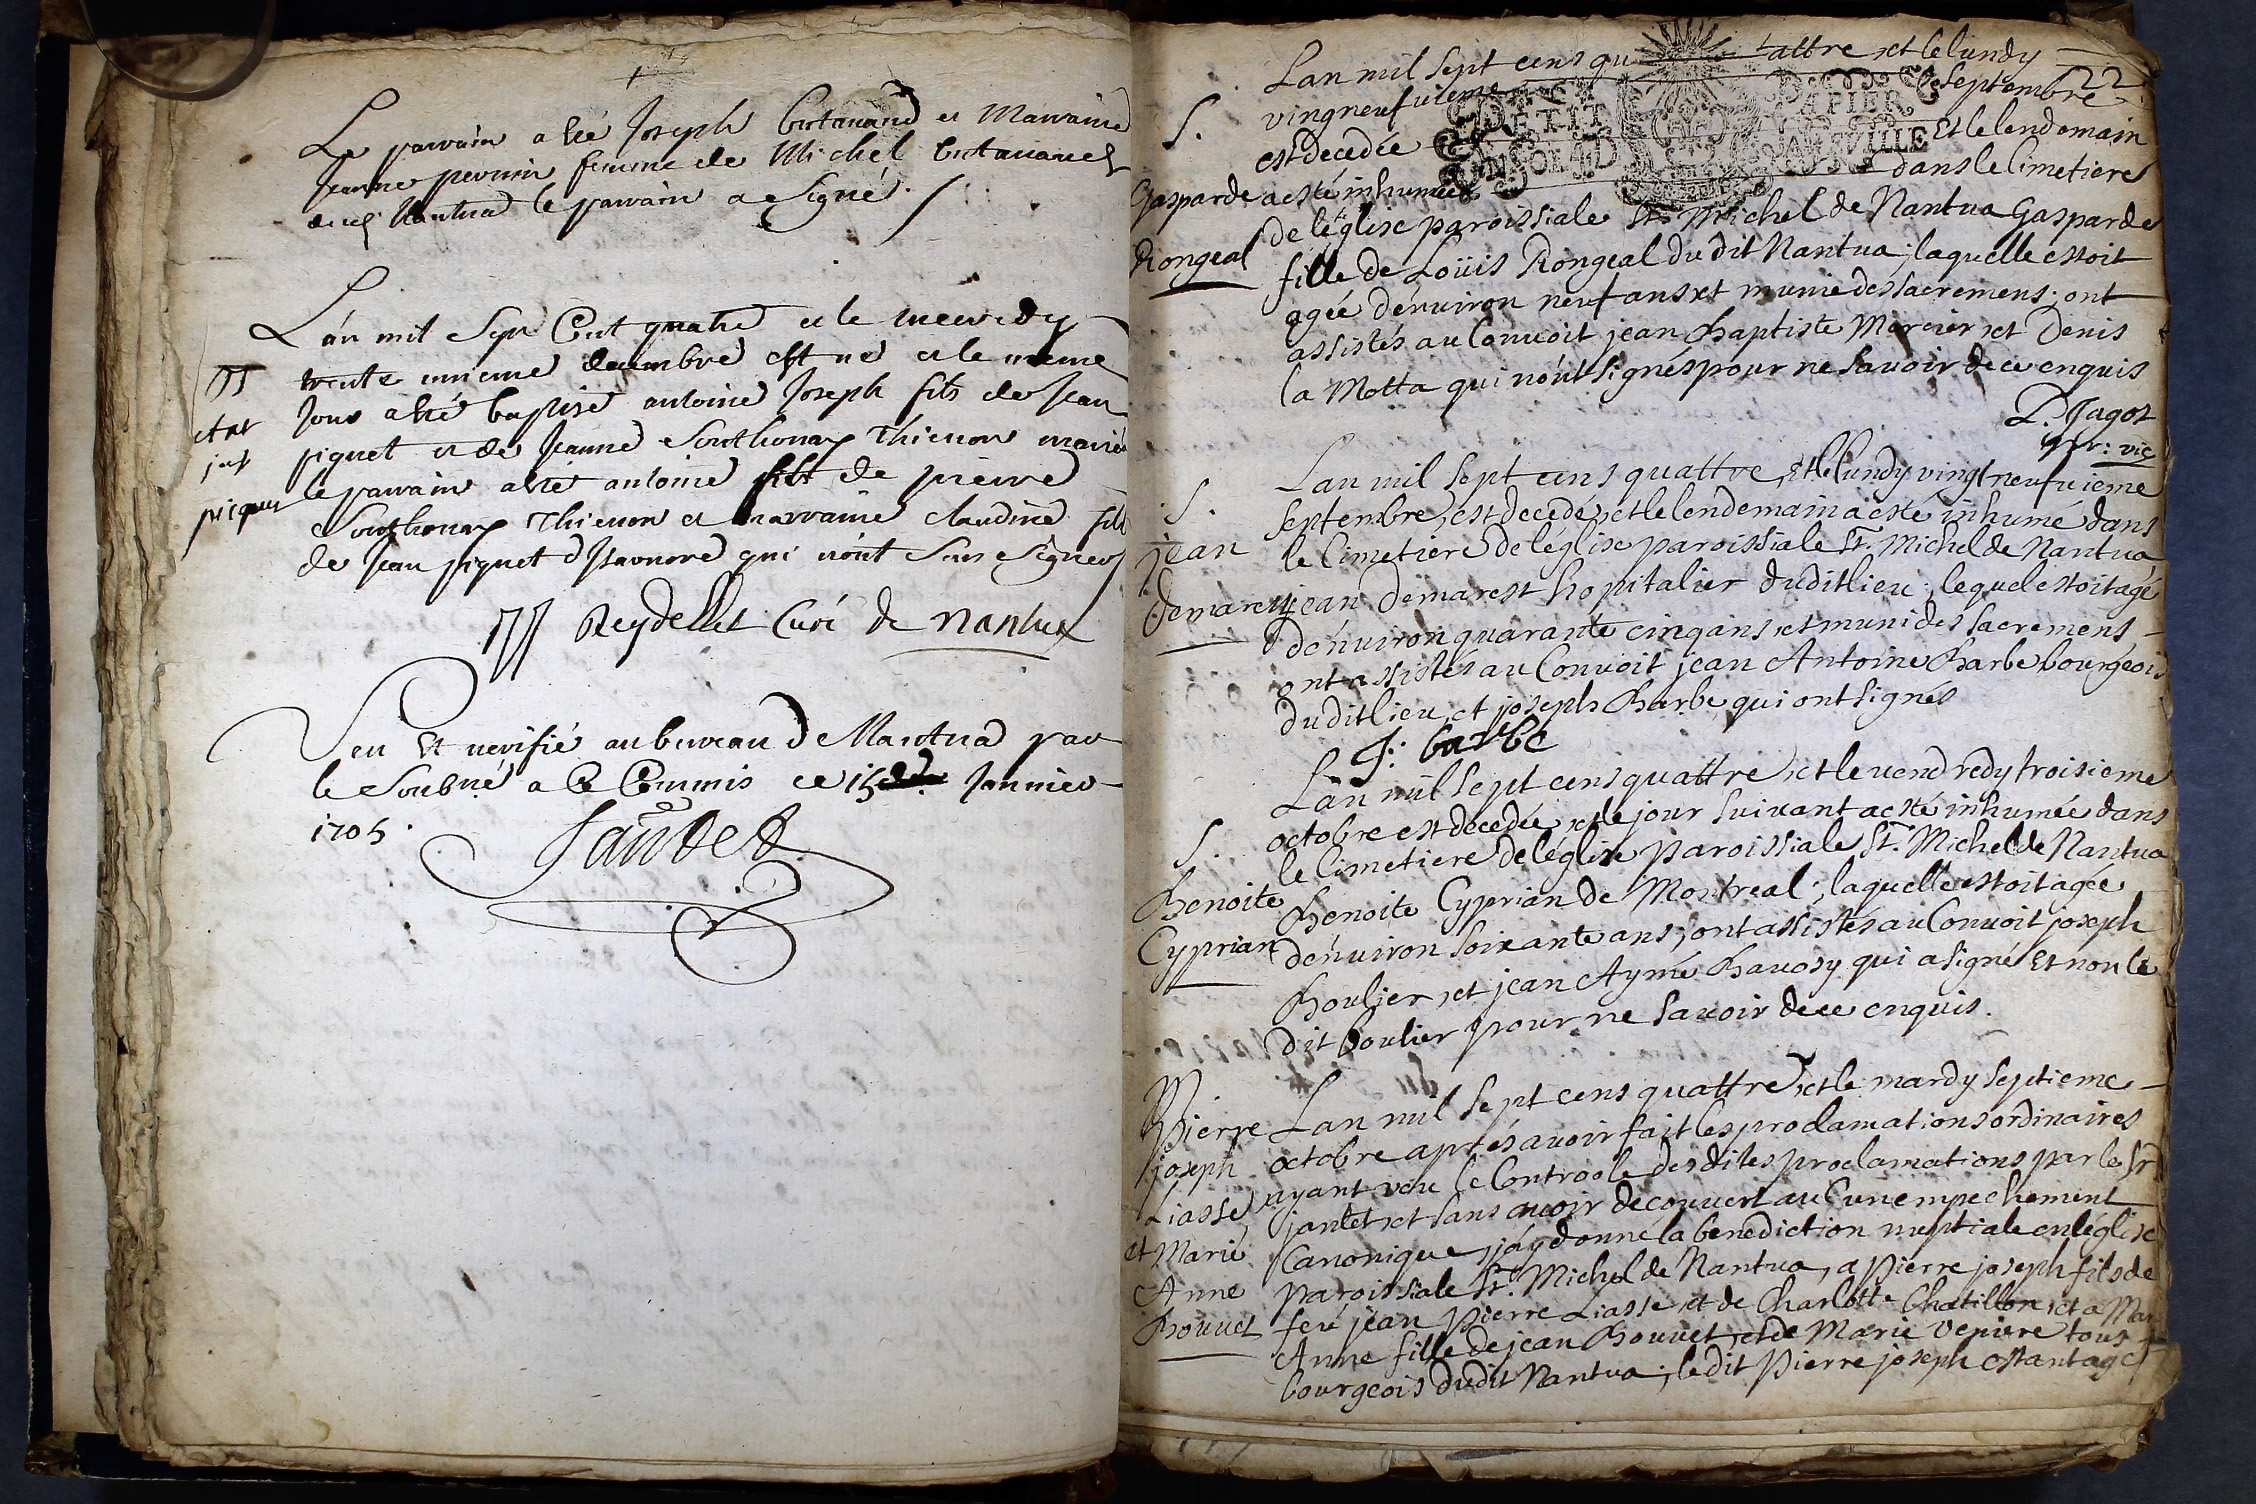 Le parrain a été Joseph butavand et Marraine
Jeanne perrin femme de Michel butavand
dud Nantua le parrain a signé

L'an mil sept Cent quatre et le mercredy
trente unieme decembre est né et le meme
Jour a été baptisé antoine Joseph fils de Jean
piquet et de Jeanne Southonax Thienon mariés
le parrain a été antoine fils de pierre
Southonax Thienon et marraine claudine fille
de Jean piquet d'Isarnore qui n'ont sceu signer
ant
jos
piquet
Reydellet Curé de nantua

Veu Et verifié au bureau de Nantua par
le Soubné a ce Commis ce 15 Janvier
1705.
Jantet

22
Lan mil sept cens quattre, et le lundy
vingneufuieme septembre
est decedée Et le lendemain
a esté inhumée dans le cimetiere
de léglise paroissiale St. Michel de Nantua Gasparde
fille de Loüis Rongeal dudit Nantua; laquelle estoit
agée dénuiron neuf ans et munie des sacremens; ont
assistés au Conuoit jean Baptiste Mercier et Denis
la Motta qui nónt signés pour ne sauoir de ce enquis
P. Jagot
vic
S.
Gasparde
Rongeal

Lan mil sept cens quattre, Et le lundy vingtneufuieme
septembre, est decedé, et le lendemain a esté inhumé dans
le cimetiere de léglise paroissiale St. Michel de Nantua
jean Demarest hopitalier dudit lieu; lequel estoit agé
dénuiron quarante cinq ans, et muni des sacremens
ont assistés au Conuoit jean Antoine Barbe bourgeois
dudit lieu, et joseph Barbe qui ont signés
J: barbe
S.
jean
Demarest

Lan mil sept cens quattre, et le vendredy troisieme
octobre est decedée et le jour suivant a esté inhumée dans
le cimetiere de léglise paroissiale St. Michel de Nantua
Benoite Cyprian de Montreal; laquelle estoit agée
dénuiron soixante ans; ont assistés au Conuoit joseph
Boulier, et jean Aymé Bauosy qui a signé Et non le
dit Boulier pour ne sauoir de ce enquis.
S.
Benoite
Cyprian

Lan mil sept cens quattre, et le mardy septieme
octobre aprés auoir fait les proclamations ordinaires
ayant veu le Controole desdites proclamations par le Sr
jantet, et sans auoir decouvert aucun empechement
Canonique, jáy donné la benediction nuptiale en léglise
paroissiale St. Michel de Nantua, a Pierre joseph fils de
feü jean Pierre Liasse, et de Charlotte Chatillon, et a Mar
Anne fille de jean Bouuet, et de Marie Veniere tous
bourgeois dudit Nantua; ledit Pierre joseph estant agé
Pierre
joseph
Liasse
et Marie
Anne
Bouuet